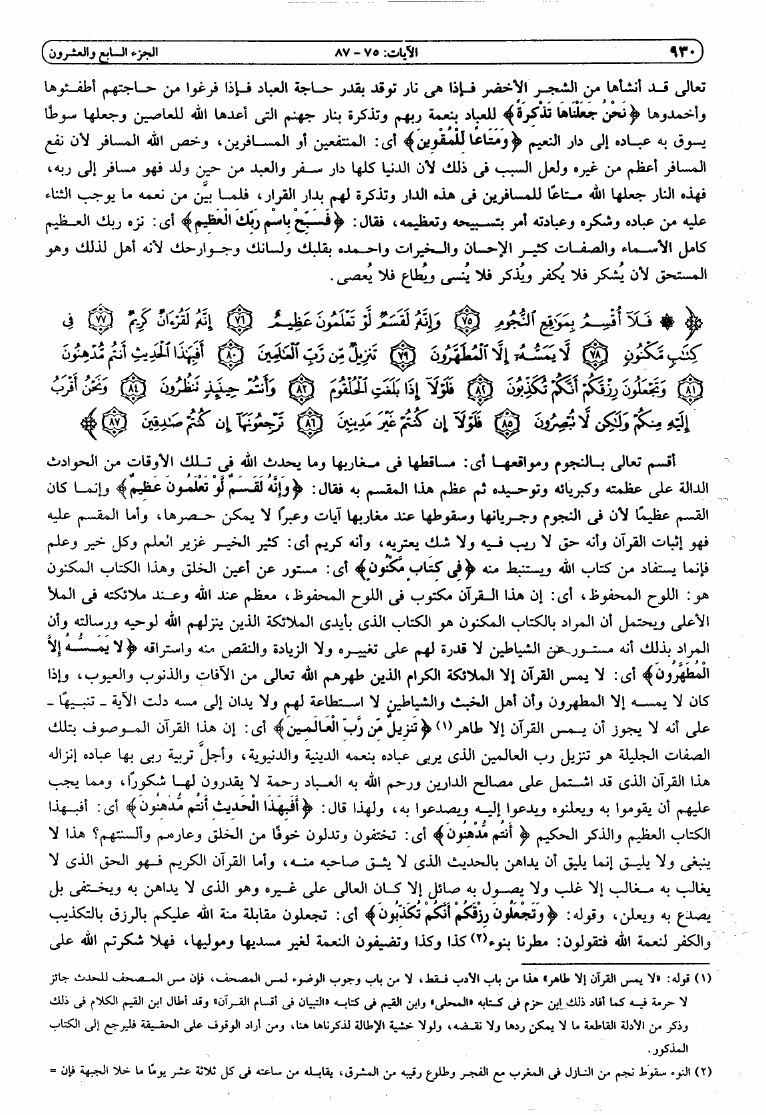 ٩٣٠ الآيات: ٧٥ - ٨٧ الجزء السابع والعشرون
تعالى قد أنشأها من الشجر الأخضر فإذا هى نار توقد بقدر حاجة العباد فإذا فرغوا من حاجتهم أطفئوها
وأخمدوها ﴿نَحْنُ جَعَلْنَاهَا تَذْكِرَةً﴾ للعباد بنعمة ربهم وتذكرة بنار جهنم التى أعدها الله للعاصين وجعلها سوطًا
يسوق به عباده إلى دار النعيم ﴿وَمَتَاعًا لِّلْمُقْوِينَ﴾ أى: المنتفعين أو المسافرين، وخص الله المسافر لأن نفع
المسافر أعظم من غيره ولعل السبب فى ذلك لأن الدنيا كلها دار سفر والعبد من حين ولد فهو مسافر إلى ربه،
فهذه النار جعلها الله متاعًا للمسافرين فى هذه الدار وتذكرة لهم بدار القرار، فلما بيَّن من نعمه ما يوجب الثناء
عليه من عباده وشكره وعبادته أمر بتسبيحه وتعظيمه، فقال: ﴿فَسَبِّحْ بِاسْمِ رَبِّكَ الْعَظِيمِ﴾ أى: نزه ربك العظيم
كامل الأسماء والصفات كثير الإحسان والخيرات واحمده بقلبك ولسانك وجوارحك لأنه أهل لذلك وهو
المستحق لأن يُشكر فلا يُكفر ويُذكر فلا يُنسى ويُطاع فلا يُعصى.
﴿ ۞ فَلَآ أُقْسِمُ بِمَوَٰقِعِ ٱلنُّجُومِ ﴿٧٥﴾ وَإِنَّهُۥ لَقَسَمٌ لَّوْ تَعْلَمُونَ عَظِيمٌ ﴿٧٦﴾ إِنَّهُۥ لَقُرْءَانٌ كَرِيمٌ ﴿٧٧﴾ فِى
كِتَٰبٍ مَّكْنُونٍ ﴿٧٨﴾ لَّا يَمَسُّهُۥٓ إِلَّا ٱلْمُطَهَّرُونَ ﴿٧٩﴾ تَنزِيلٌ مِّن رَّبِّ ٱلْعَٰلَمِينَ ﴿٨٠﴾ أَفَبِهَٰذَا ٱلْحَدِيثِ أَنتُم مُّدْهِنُونَ
﴿٨١﴾ وَتَجْعَلُونَ رِزْقَكُمْ أَنَّكُمْ تُكَذِّبُونَ ﴿٨٢﴾ فَلَوْلَآ إِذَا بَلَغَتِ ٱلْحُلْقُومَ ﴿٨٣﴾ وَأَنتُمْ حِينَئِذٍ تَنظُرُونَ ﴿٨٤﴾ وَنَحْنُ أَقْرَبُ
إِلَيْهِ مِنكُمْ وَلَٰكِن لَّا تُبْصِرُونَ ﴿٨٥﴾ فَلَوْلَآ إِن كُنتُمْ غَيْرَ مَدِينِينَ ﴿٨٦﴾ تَرْجِعُونَهَآ إِن كُنتُمْ صَٰدِقِينَ ﴿٨٧﴾ ﴾
أقسم تعالى بالنجوم ومواقعها أى: مساقطها فى مغاربها وما يحدث الله فى تلك الأوقات من الحوادث
الدالة على عظمته وكبريائه وتوحيده ثم عظم هذا المقسم به فقال: ﴿وَإِنَّهُ لَقَسَمٌ لَّوْ تَعْلَمُونَ عَظِيمٌ﴾ وإنما كان
القسم عظيمًا لأن فى النجوم وجريانها وسقوطها عند مغاربها آيات وعبرًا لا يمكن حصرها، وأما المقسم عليه
فهو إثبات القرآن وأنه حق لا ريب فيه ولا شك يعتريه، وأنه كريم أى: كثير الخير غزير العلم وكل خير وعلم
فإنما يستفاد من كتاب الله ويستنبط منه ﴿فِي كِتَابٍ مَّكْنُونٍ﴾ أى: مستور عن أعين الخلق وهذا الكتاب المكنون
هو: اللوح المحفوظ، أى: إن هذا القرآن مكتوب فى اللوح المحفوظ، معظم عند الله وعند ملائكته فى الملأ
الأعلى ويحتمل أن المراد بالكتاب المكنون هو الكتاب الذى بأيدى الملائكة الذين ينزلهم الله لوحيه ورسالته وأن
المراد بذلك أنه مستور عن الشياطين لا قدرة لهم على تغييره ولا الزيادة والنقص منه واستراقه ﴿لَا يَمَسُّهُ إِلَّا
الْمُطَهَّرُونَ﴾ أى: لا يمس القرآن إلا الملائكة الكرام الذين طهرهم الله تعالى من الآفات والذنوب والعيوب، وإذا
كان لا يمسه إلا المطهرون وأن أهل الخبث والشياطين لا استطاعة لهم ولا يدان إلى مسه دلت الآية ـ تنبيهًا ـ
على أنه لا يجوز أن يمس القرآن إلا طاهر(١) ﴿تَنزِيلٌ مِّن رَّبِّ الْعَالَمِينَ﴾ أى: إن هذا القرآن الموصوف بتلك
الصفات الجليلة هو تنزيل رب العالمين الذى يربى عباده بنعمه الدينية والدنيوية، وأجلُّ تربية ربى بها عباده إنزاله
هذا القرآن الذى قد اشتمل على مصالح الدارين ورحم الله به العباد رحمة لا يقدرون لها شكورًا، ومما يجب
عليهم أن يقوموا به ويعلنوه ويدعوا إليه ويصدعوا به، ولهذا قال: ﴿أَفَبِهَذَا الْحَدِيثِ أَنتُم مُّدْهِنُونَ﴾ أى: أفبهذا
الكتاب العظيم والذكر الحكيم ﴿أَنتُم مُّدْهِنُونَ﴾ أى: تختفون وتدلون خوفًا من الخلق وعارهم وألسنتهم؟ هذا لا
ينبغى ولا يليق إنما يليق أن يداهن بالحديث الذى لا يثق صاحبه منه، وأما القرآن الكريم فهو الحق الذى لا
يغالب به مغالب إلا غلب ولا يصول به صائل إلا كان العالى على غيره وهو الذى لا يداهن به ويختفى بل
يصدع به ويعلن، وقوله: ﴿وَتَجْعَلُونَ رِزْقَكُمْ أَنَّكُمْ تُكَذِّبُونَ﴾ أى: تجعلون مقابلة منة الله عليكم بالرزق بالتكذيب
والكفر لنعمة الله فتقولون: مطرنا بنوء(٢) كذا وكذا وتضيفون النعمة لغير مسديها وموليها، فهلا شكرتم الله على
(١) قوله: «لا يمس القرآن إلا طاهر» هذا من باب الأدب فقط، لا من باب وجوب الوضوء لمس المصحف، فإن مس المصحف للحدث جائز
لا حرمة فيه كما أفاد ذلك ابن حزم فى كتابه «المحلى» وابن القيم فى كتابه «التبيان فى أقسام القرآن» وقد أطال ابن القيم الكلام فى ذلك
وذكر من الأدلة القاطعة ما لا يمكن ردها ولا نقضه، ولولا خشية الإطالة لذكرناها هنا، ومن أراد الوقوف على الحقيقة فليرجع إلى الكتاب
المذكور.
(٢) النوء سقوط نجم من النازل فى المغرب مع الفجر وطلوع رقيبه من المشرق، يقابله من ساعته فى كل ثلاثة عشر يومًا ما خلا الجبهة فإن =